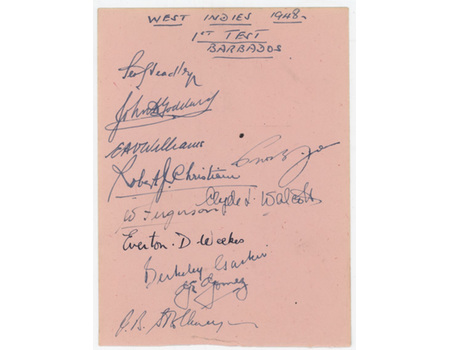 WEST INDIES 1948.
1ST TEST
BARBADOS
Geo Headley
John D Goddard
E A V Williams
Robert J. Christiani
Clyde L. Walcott
W. Ferguson
Everton. D. Weekes
Berkeley Gaskin
G E Gomez